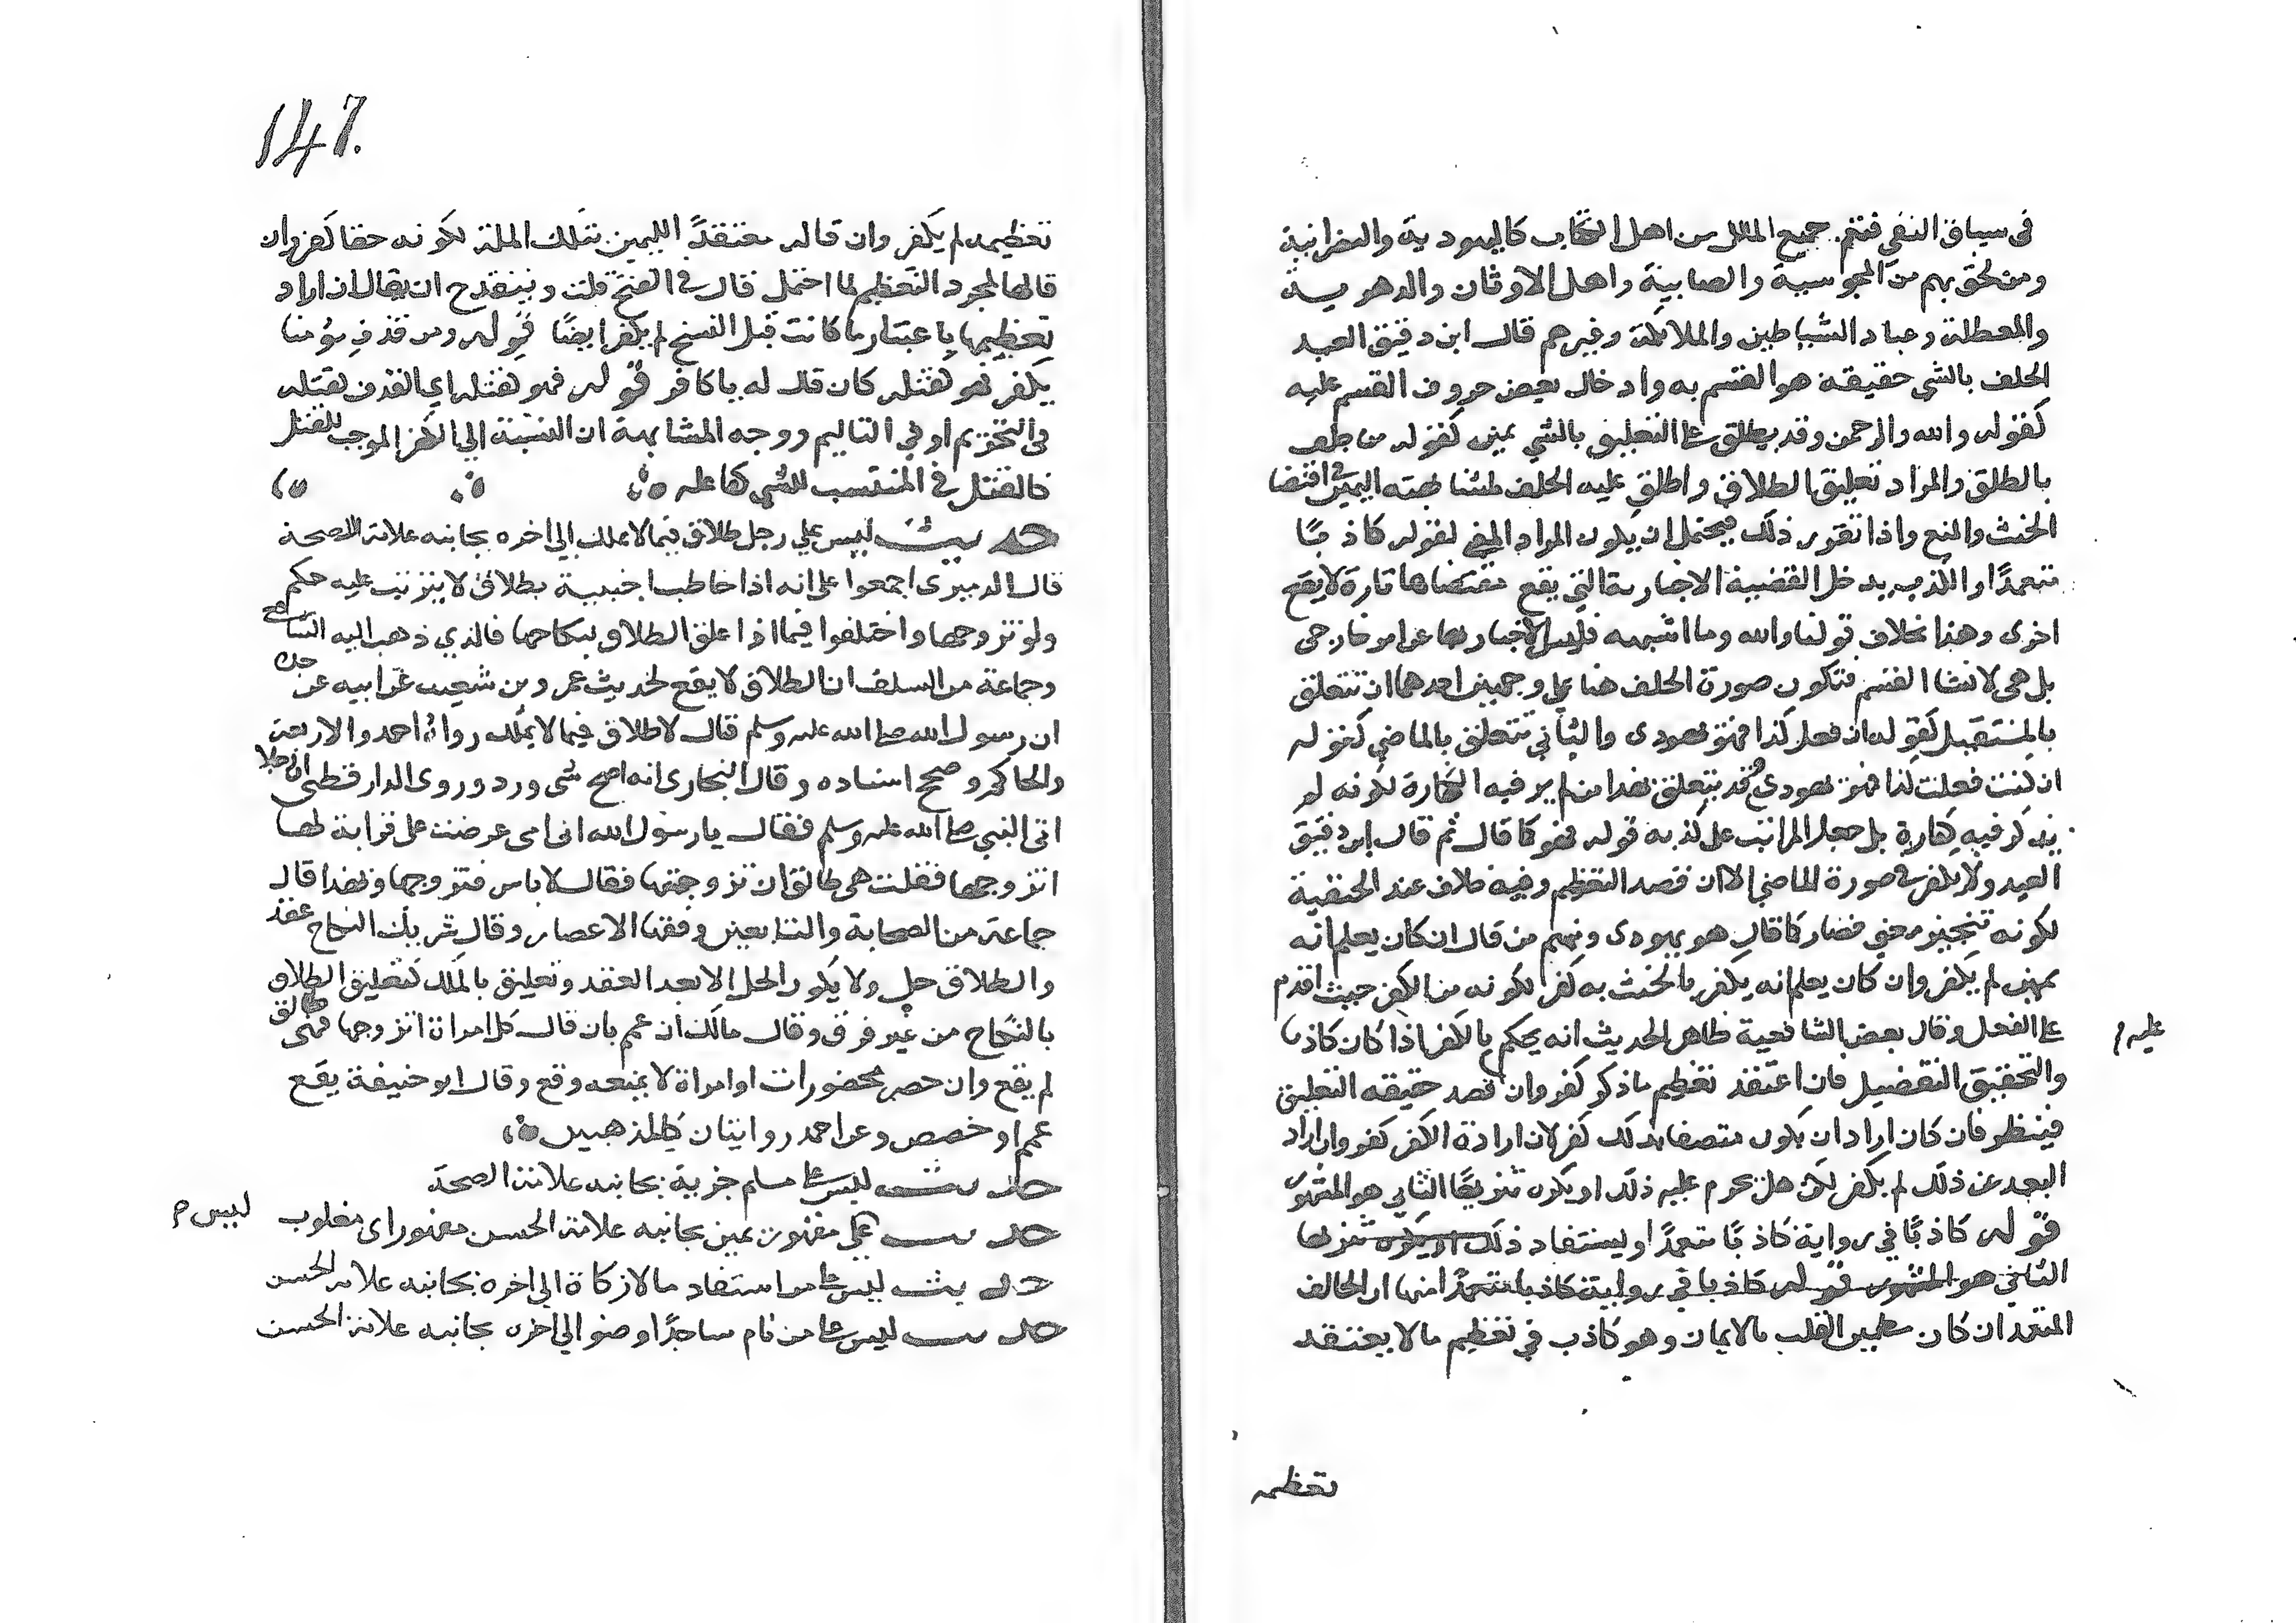 في سياق النفي فتعم جميع الملل من اهل الكتاب كاليهودية والنصرانية
ومن لحق بهم من المجوسية والصابية واهل الاوثان والدهرية
والمعطلة وعباد الشياطين والملائكة وغيرهم قال ابن دقيق العيد
الحلف بالشي حقيقة هو القسم به وادخال بعض حروف القسم عليه
كقوله والله والرحمن وقد يطلق على التعليق بالشي يمين كقوله من حلف
بالطلاق والمراد تعليق الطلاق واطلق عليه الحلف لمشابهته اليمين في اقتضا
الحنث والمنع واذا تقرر ذلك فيحتمل ان يكون المراد المعنى لقوله كاذبا
متعمدا والكذب يدخل القضية الاخبارية التي يقع مقتضاها تارة لا يقع
اخرى وهذا بخلاف قولنا والله وما اشبهه فليس الاخبار بها عن امر خارجي
بل هي لانشا القسم فتكون صورة الحلف هنا على وجهين احدهما ان تتعلق
بالمستقبل كقوله ان فعل كذا فهو يهودي والثاني تتعلق بالماضي كقوله
ان كنت فعلت كذا فهو يهودي وقد يتعلق بهذا من لم ير فيه الكفارة لكونه لم
يذكر فيه كفارة بل جعل المرتب على كذبه قوله فهو كما قال ثم قال ابن دقيق
العيد ولا يكفر في صورة الماضي الا ان قصد التعظيم وفيه خلاف عند الحنفية
لكونه تنجيز معنى فصار كما قال هو يهودي ومنهم من قال ان كان يعلم انه
يمين لم يكفر وان كان يعلم انه يكفر بالحنث به كفر لكونه من الكفر حيث اقدم
على الفعل وقال بعض الشافعية ظاهر الحديث انه يحكم عليه بالكفر اذا كان كاذبا
والتحقيق التفصيل فان اعتقد تعظيم ما ذكر كفر وان قصد حقيقة التعليق
فينظر فان كان اراد ان يكون متصفا بذلك كفر لان ارادة الكفر كفر وان اراد
البعد عن ذلك لم يكفر لكن هل يحرم عليه ذلك او يكره تنزيها الثاني هو المشهور
قوله كاذبا في رواية كاذبا متعمدا ويستفاد ذلك او يكره تنزيها
الثاني هو المشهور قوله كاذبا في رواية كاذبا متعمدا منها ان الحالف
المتعمد ان كان مطمئن القلب بالايمان وهو كاذب في تعظيم ما لا يعتقد
تعظيمه
147.
تعظيمه لم يكفر وان قاله معتقدا اليمين بتلك الملة لكونه حقا كفر وان
قالها لمجرد التعظيم لها احتمل قال في الفتح قلت وينقدح ان يقال ان اراد
تعظيمها باعتبار ما كانت قبل النسخ لم يكفر ايضا قوله ومن قذف مؤمنا
بكفر فهو كقتله كان قال له يا كافر قوله فهو كقتله اي القذف كقتله
في التحريم او في التاليم ووجه المشابهة ان النسبة الي الكفر الموجب للقتل
فالقتل في المنتسب للشي كفاعله
حديث ليس على رجل طلاق فيما لا يملك الي اخره بجانبه علامة الصحة
قال الدميري اجمعوا على انه اذا خاطب اجنبية بطلاق لا يترتب عليه حكم
ولو تزوجها واختلفوا فيما اذا علق الطلاق بنكاحها فالذي ذهب اليه الشافعي
وجماعة من السلف ان الطلاق لا يقع لحديث عمرو بن شعيب عن ابيه عن جده
ان رسول الله صلى الله عليه وسلم قال لا طلاق فيما لا يملك رواه احمد والاربعة
والحاكم وصحح اسناده وقال البخاري انه اصح شي ورد وروى الدارقطني ان رجلا
اتى النبي صلى الله عليه وسلم فقال يا رسول الله ان امي عرضت على قرابة لها
اتزوجها فقلت هي طالق ان تزوجتها فقال لا باس فتزوجها وبهذا قال
جماعة من الصحابة والتابعين وفقها الاعصار وقال شريك النكاح عقد
والطلاق حل ولا يكون الحل الا بعد العقد وتعليق بالملك كتعليق الطلاق
بالنكاح من غير فرق وقال مالك ان عمم بان قال كل امراة اتزوجها فهي طالق
لم يقع وان حصر بمحضورات او امراة لا بمنعه وقع وقال ابو حنيفة يقع
عمم او خصص وعن احمد روايتان كالمذهبين
حديث ليس على مسلم جزية بجانبه علامة الصحة
حديث ليس على مقهور يمين بجانبه علامة الحسن مقهور اي مغلوب
حديث ليس على من استفاد مالا زكاة الي اخره بجانبه علامة الحسن
حديث ليس على من نام ساجدا وضو الي اخره بجانبه علامة الحسن